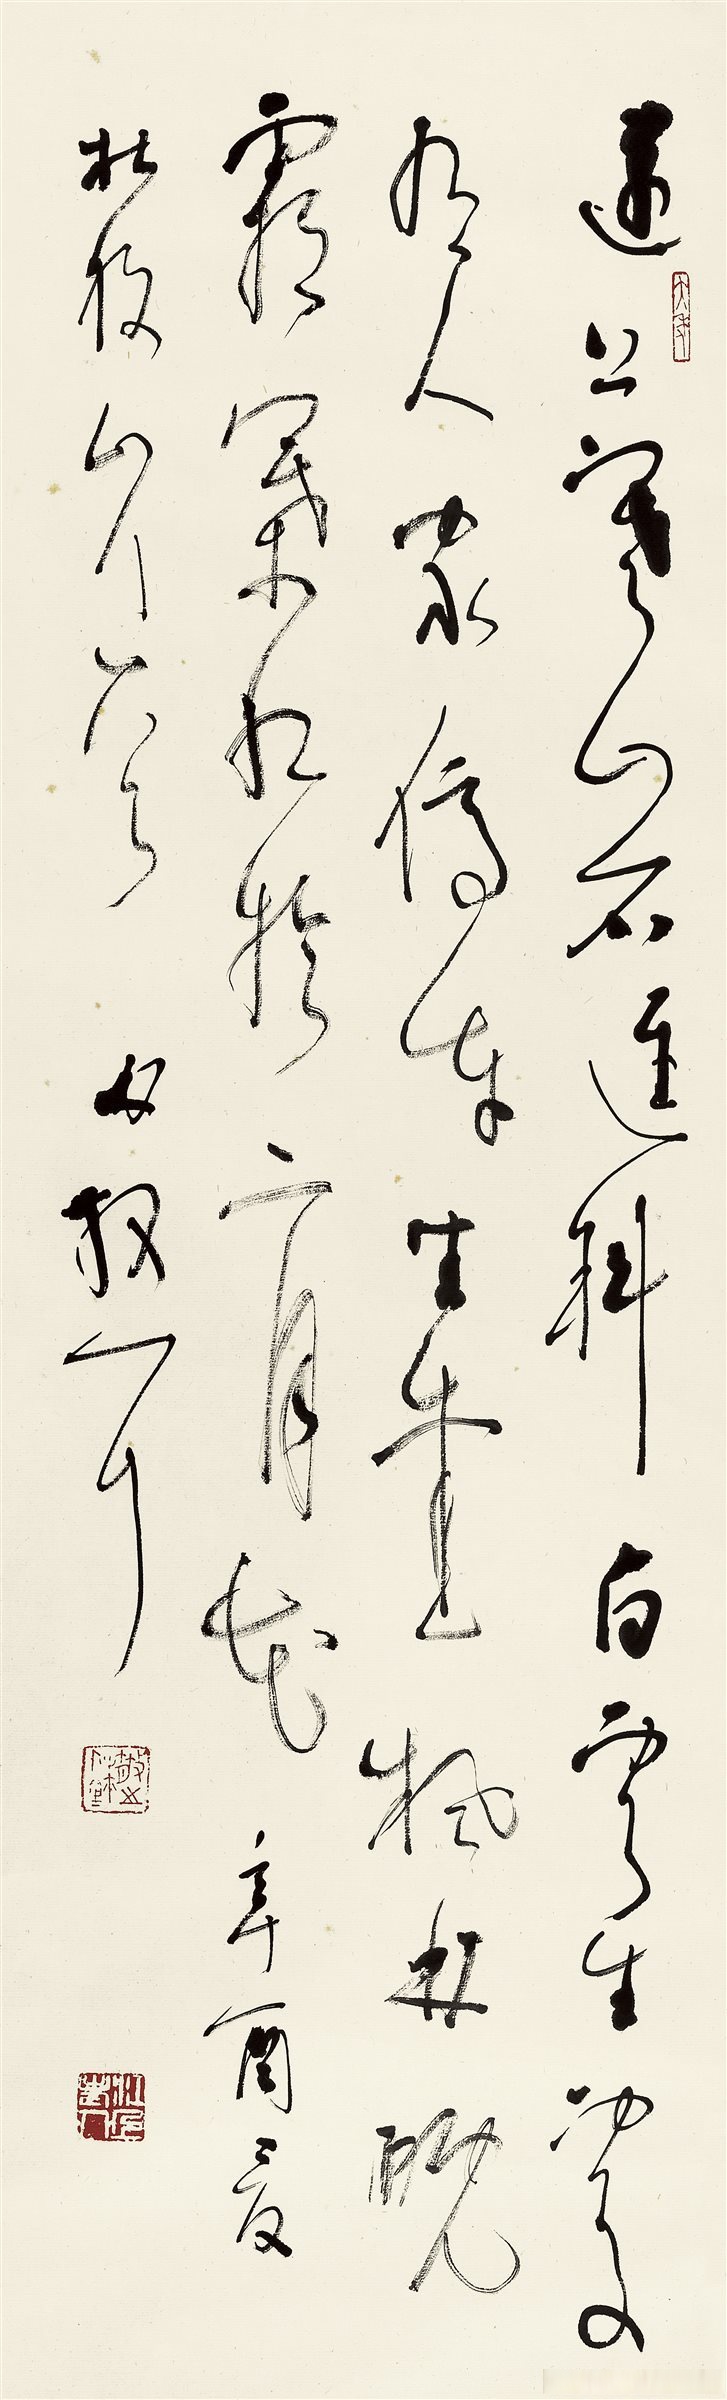 遠上寒山石逕斜白雲生處
有人家停車坐愛楓林晚
霜葉紅於二月花辛酉夏
杜牧山行